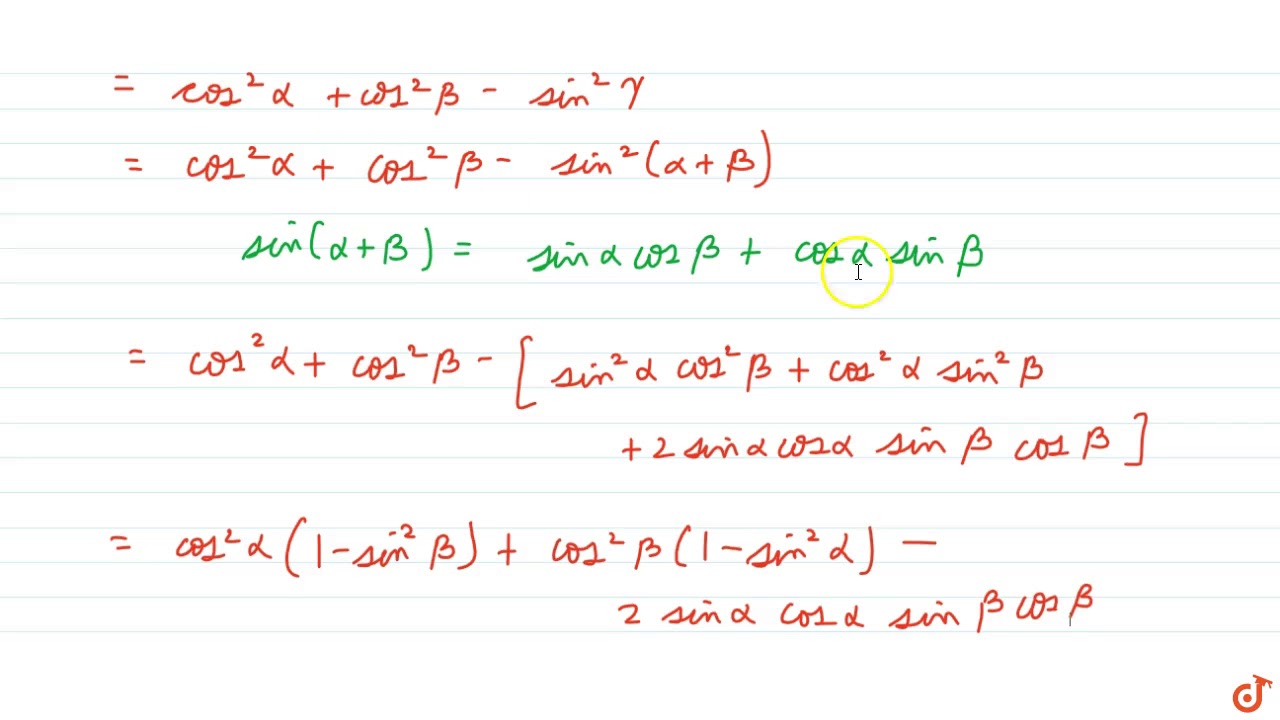 = cos²α + cos²β - sin²γ
= cos²α + cos²β - sin²(α+β)
sin(α+β) = sinα cosβ + cosα.sinβ
= cos²α + cos²β - [sin²α cos²β + cos²α sin²β
+ 2 sinα cosα sinβ cosβ]
= cos²α(1-sin²β) + cos²β(1-sin²α) -
2 sinα cosα sinβ cosβ